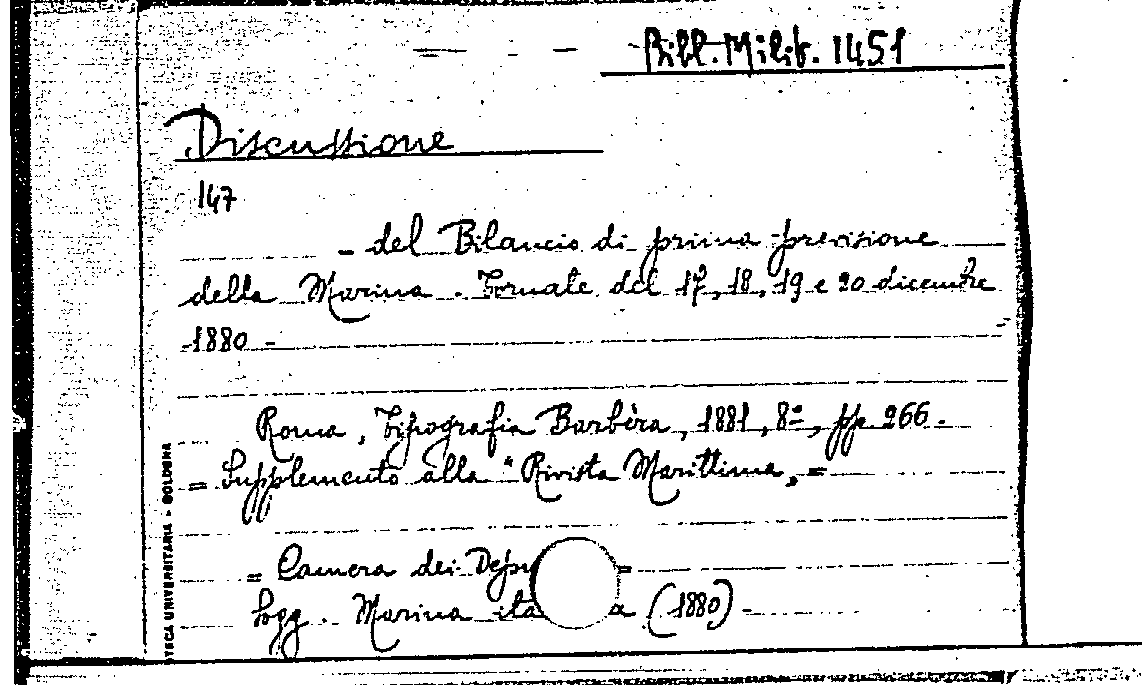 Bibl. Milit. 1451
Discussione
147
- del Bilancio di prima previsione
della Marina. Tornate del 17, 18, 19 e 20 dicembre
1880 -
Roma, Tipografia Barbèra, 1881, 8º, pp. 266.
= Supplemento alla "Rivista Marittima" =
= Camera dei Depu =
Sogg. Marina ita a (1880)
TECA UNIVERSITARIA - BOLOGNA